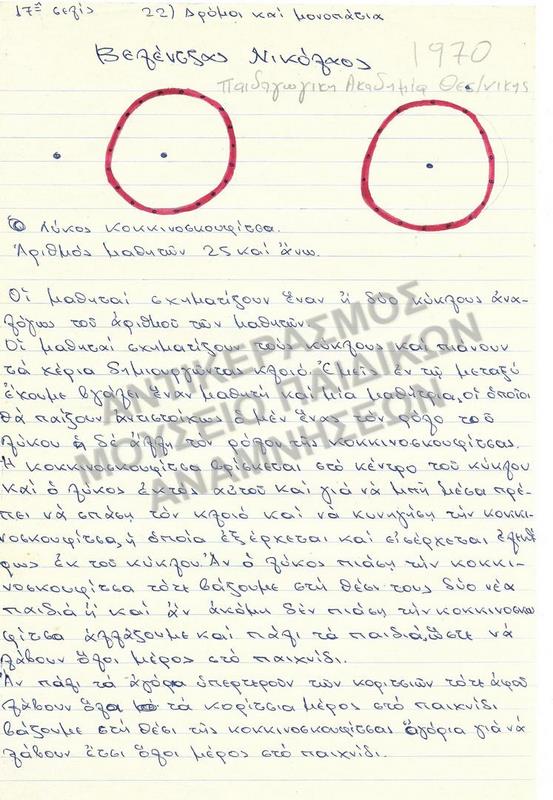 17η σελίς 22) Δρόμοι καί μονοπάτια
Βελένtζας Νικόλαος 1970
Παιδαγωγική Ακαδημία Θεσ/νίκης
Ὁ Λύκος κοκκινοσκουφίτσα.
Ἀριθμός μαθητῶν 25 καί ἄνω.
Οἱ μαθηταί σχηματίζουν ἕναν ἤ δύο κύκλους ἀνα-
λόγως τοῦ ἀριθμοῦ τῶν μαθητῶν.
Οἱ μαθηταί σχηματίζουν τούς κύκλους καί πιάνουν
τά χέρια δημιουργῶντας κλοιό. Ἐμεῖς ἐν τῷ μεταξύ
ἔχουμε βγάλει ἕναν μαθητή καί μία μαθήτρια, οἱ ὁποῖοι
θά παίξουν ἀντιστοίχως ὁ μέν ἕνας τόν ρόλο τοῦ
λύκου ἡ δέ ἄλλη τόν ρόλον τῆς κοκκινοσκουφίτσας.
Ἡ κοκκινοσκουφίτσα βρίσκεται στό κέντρο τοῦ κύκλου
καί ὁ λύκος ἐκτός αὐτοῦ καί γιά νά μπῆ μέσα πρέ-
πει νά σπάση τόν κλοιό καί νά κυνηγήση τήν κοκκι-
νοσκουφίτσα, ἡ ὁποία ἐξέρχεται καί εἰσέρχεται ἐλευθέ-
ρως ἐκ τοῦ κύκλου. Ἄν ὁ λύκος πιάση τήν κοκκι-
νοσκουφίτσα τότε βάζουμε στή θέσι τους δύο νέα
παιδιά ἤ καί ἄν ἀκόμη δέν πιάση τήν κοκκινοσκου
φίτσα ἀλλάζουμε καί πάλι τά παιδιά, ὥστε νά
λάβουν ὅλοι μέρος στό παιχνίδι.
Ἄν πάλι τά ἀγόρια ὑπερτεροῦν τῶν κοριτσιῶν τότε ἀφοῦ
λάβουν ὅλα τά κορίτσια μέρος στό παιχνίδι
βάζουμε στή θέσι τῆς κοκκινοσκουφίτσας ἀγόρια γιά νά
λάβουν ἔτσι ὅλοι μέρος στό παιχνίδι.
ΑΝΤΙΚΕΡΑΣΜΟΣ
ΜΟΥΣΕΙΟ ΠΑΙΔΙΚΩΝ
ΑΝΑΜΝΗΣΕΩΝ